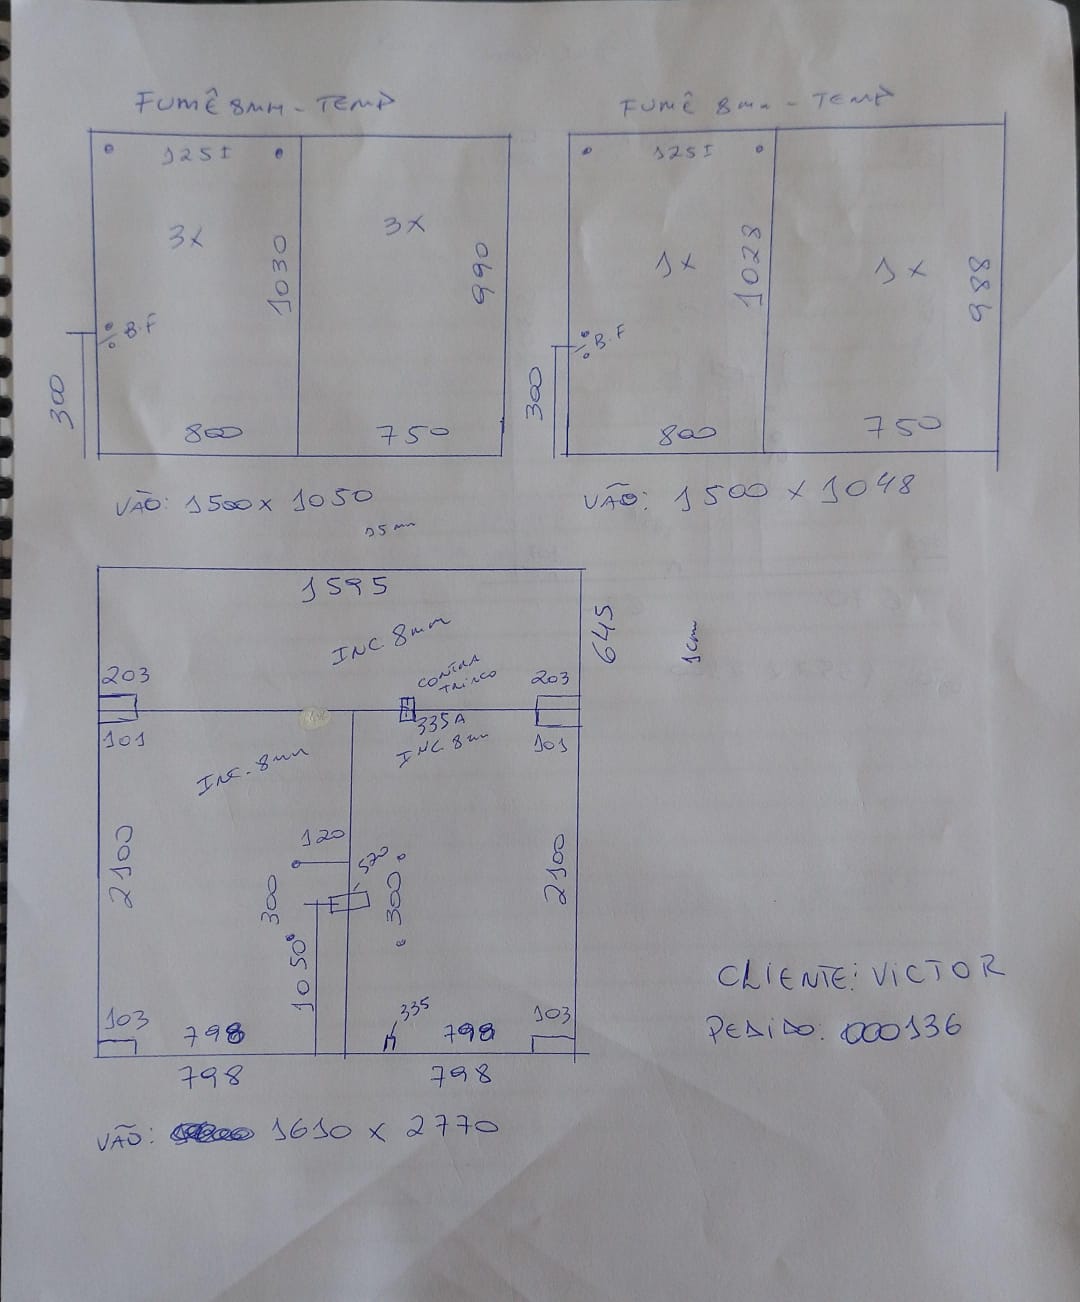 FUMÊ 8MM - TEMP
1251
3X
3X
1030
990
B.F
300
800
750
VÃO: 1500 X 1050
FUMÊ 8mm - TEMP
1251
1X
1X
1028
988
B.F
300
800
750
VÃO: 1500 X 1048
15mm
1595
INC 8mm
645
1cm
203
CONTRA
TRINCO
203
101
335A
101
INC. 8mm
INC. 8mm
2100
120
570
300
300
2100
1050
103
335
103
798
798
798
798
VÃO: 1610 X 2770
CLIENTE: VICTOR
PEDIDO: 000136